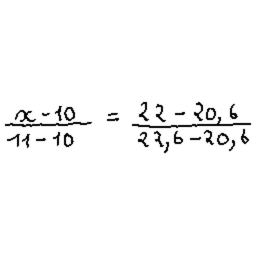 x - 10 / 11 - 10 = 22 - 20,6 / 22,6 - 20,6